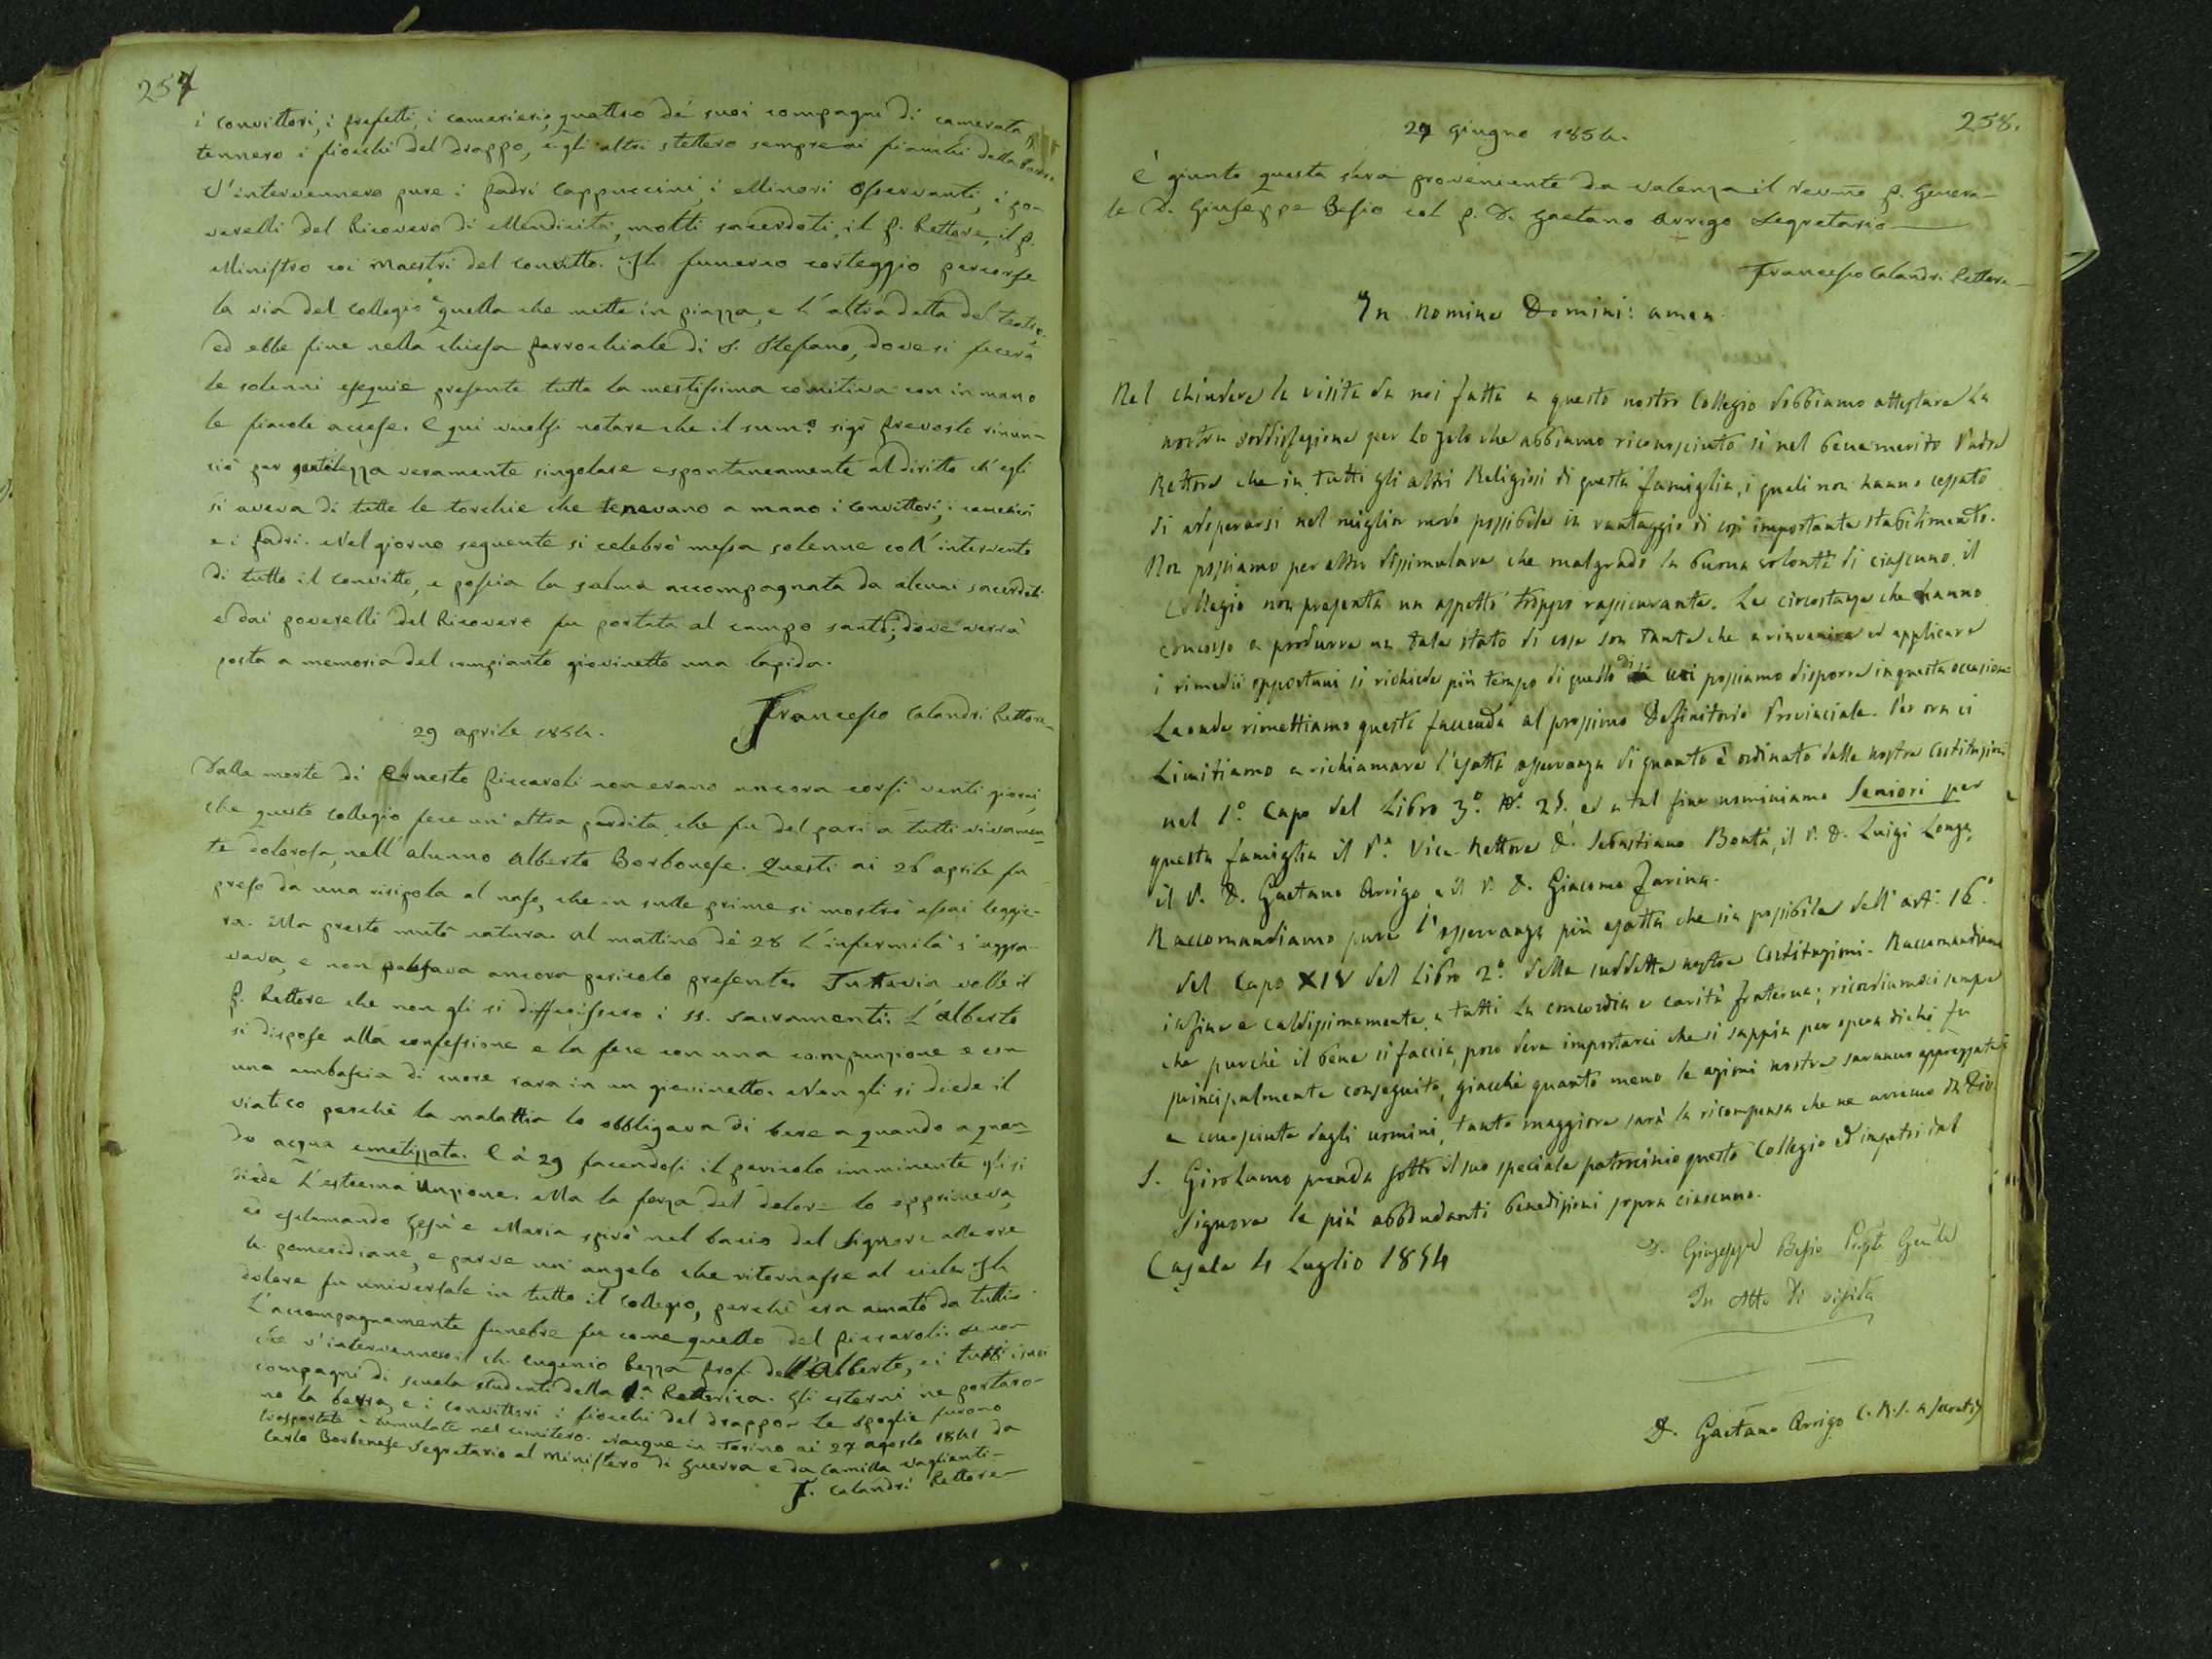 257
i convittori, i prefetti, i camerieri, quattro de' suoi compagni di camerata
tennero i fiocchi del drappo, e gli altri stettero sempre ai fianchi della bara.
V'intervennero pure i padri Cappuccini, i Minori Osservanti, i po-
verelli del Ricovero di Mendicità, molti sacerdoti, il P. Rettore, il P.
Ministro coi Maestri del convitto. Il funereo corteggio percorse
la via del collegio quella che mette in piazza, e l'altra detta del teatro,
ed ebbe fine nella chiesa parrochiale di S. Stefano, dove si fecero
le solenni esequie presente tutta la mestissima comitiva con in mano
le fiacole accese. E qui vuolsi notare che il sigr prevosto rinun-
ciò per gentilezza veramente singolare e spontaneamente al diritto ch'egli
si aveva di tutte le torchie che tenevano a mano i convittori, i camerieri
e i padri. Nel giorno seguente si celebrò messa solenne coll'intervento
di tutto il convitto, e poscia la salma accompagnata da alcuni sacerdoti
e dai poverelli del Ricovero fu portata al campo santo, dove verrà
posta a memoria del compianto giovinetto una lapida.
Francesco Calandri Rettore
29 aprile 1854.
Dalla morte di Ernesto Piccaroli non erano ancora corsi venti giorni,
che questo collegio fece un'altra perdita, che fu del pari a tutti vivamen-
te dolorosa, nell'alunno Alberto Borbonese. Questi ai 26 aprile fu
preso da una risipola al naso, che in sulle prime si mostrò assai leggie-
ra. Ma presto mutò natura. Al mattino dè 28 l'infermità s'aggra-
vava, e non palesava ancora pericolo presente. Tuttavia volle il
P. Rettore che non gli si differissero i SS. Sacramenti. L'Alberto
si dispose alla confessione e la fece con una compunzione e con
una ambascia di cuore rara in un giovinetto. Non gli si diede il
viatico perchè la malattia lo obbligava di bere a quando a quan-
do acqua emetizzata. E a' 29 facendosi il pericolo imminente gli si
diede l'estrema Unzione. Ma la forza del dolore lo opprimeva,
ed esclamando Gesù e Maria spirò nel bacio del Signore alle ore
4. pomeridiane, e parve un angelo che ritornasse al cielo. Il
dolore fu universale in tutto il Collegio, perchè era amato da tutti.
L'accompagnamento funebre fu come quello del Piccaroli. Se non
che v'intervennero il ch. Eugenio Pezza prof. dell'Alberto, ei tutti i suoi
compagni di scuola studenti della 1.a Rettorica. Gli esterni ne portaro-
no la bara, e i convittori i fiocchi del drappo. Le spoglie furono
trasportate e tumulate nel cimitero. Nacque in Torino ai 27 agosto 1841 da
Carlo Borbonese Segretario al Ministero di Guerra e da Camilla Vaglienti.
F. Calandri Rettore
258.
27 giugno 1854.
È giunto questa sera proveniente da Valenza il revmo P. Genera-
le D. Giuseppe Besio col P. D. Gaetano Arrigo Segretario
Francesco Calandri Rettore
In Nomine Domini: amen
Nel chiudere la visita da noi fatta a questo nostro Collegio dobbiamo attestare la
nostra soddisfazione per lo zelo che abbiamo riconosciuto sì nel benemerito Padre
Rettore che in tutti gli altri Religiosi di questa famiglia, i quali non hanno cessato
di adoperarsi nel miglior modo possibile in vantaggio di così importante stabilimento.
Non possiamo per altro dissimulare che malgrado la buona volontà di ciascuno, il
Collegio non presenta un aspetto troppo rassicurante. Le circostanze che hanno
concorso a produrre un tale stato di cose son tante che a rinvenire ed applicare
i rimedii opportuni si richiede più tempo di quello di cui possiamo disporre in questa occasione
Laonde rimettiamo questa faccenda al prossimo Definitorio Provinciale. Per ora ci
Limitiamo a richiamare l'esatta osservanza di quanto è ordinato dalle nostre Costituzioni
nel 1.o Capo del Libro 3.o N.o 25. ed a tal fine nominiamo Seniori per
questa famiglia il P. Vice-Rettore D. Sebastiano Bontà, il P. D. Luigi Longa,
il P. D. Gaetano Arrigo, e il P. D. Giacomo Zarina.
Raccomandiamo pure l'osservanza più esatta che sia possibile dell'art. 16.o
del Capo XIV del Libro 2.o delle suddette nostre Costituzioni. Raccomandiamo
infine e caldissimamente a tutti la concordia e carità fraterna; ricordiamoci sempre
che purchè il bene si faccia, poco deve importarci che si sappia per opera di chi fu
principalmente conseguito, giacchè quanto meno le azioni nostre saranno apprezzate
e conosciute dagli uomini, tanto maggiore sarà la ricompensa che ne avremo da Dio
S. Girolamo prenda sotto il suo speciale patrocinio questo Collegio ed impetri dal
Signore le più abbondanti benedizioni sopra ciascuno.
Casale 4 Luglio 1854
D. Giuseppe Besio Prep.to Gen.le
In Atto di visita
D. Gaetano Arrigo C.R.S.